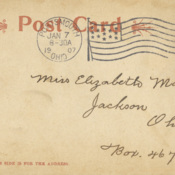 Post Card
JAN 7
8-30A
OHIO
Miss Elizabeth
Jackson
Box. 467
SIDE IS FOR THE ADDRESS.